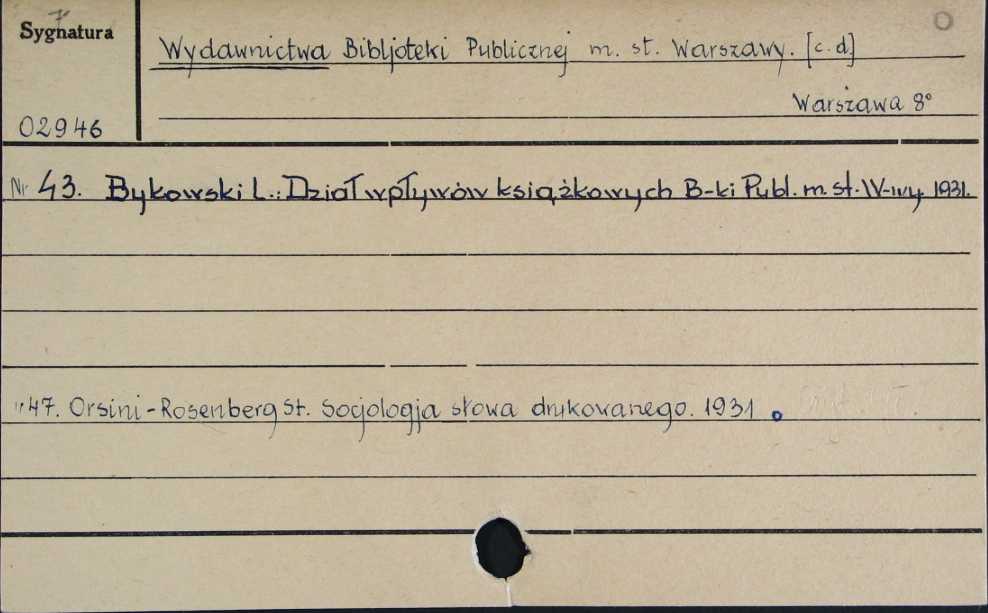 Sygnatura
Wydawnictwa Bibljoteki Publicznej m. st. Warszawy. [c. d]
Warszawa 8°
02946
Nr 43. Bykowski L.: Dział wpływów książkowych B-ki Publ. m. st. W-wy. 1931.
"47. Orsini-Rosenberg St. Socjologja słowa drukowanego. 1931